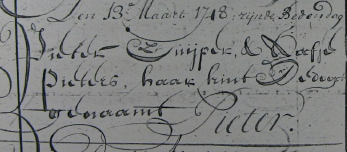 Den 13e Maart 1748: zijnde Bededag
Pieter Cuijper, & Aafje
Pieters, haar kint Gedoopt
genaamt Pieter.